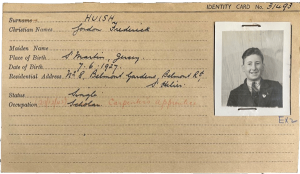 IDENTITY CARD No. 31493
Surname HUISH
Christian Names Gordon Frederick
Maiden Name
Place of Birth St. Martin, Jersey.
Date of Birth 7.6.1927.
Residential Address No 8, Belmont Gardens, Belmont Rd,
St. Helier.
Status Single
Occupation Scholar Carpenter's Apprentice